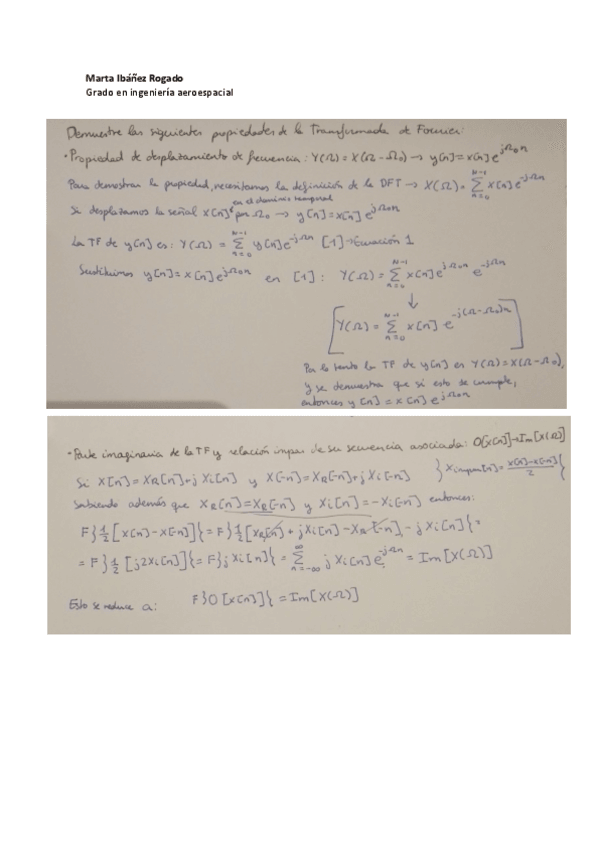 Marta Ibáñez Rogado
Grado en ingeniería aeroespacial
Demuestre las siguientes propiedades de la Transformada de Fourier:
· Propiedad de desplazamiento de frecuencia: Y(Ω) = X(Ω-Ω₀) → y[n] = x[n] e^{jΩ₀n}
Para demostrar la propiedad, necesitamos la definición de la DFT → X(Ω) = Σ_{n=0}^{N-1} x[n] e^{-jΩn}
en el dominio temporal
Si desplazamos la señal x[n] por Ω₀ → y[n] = x[n] e^{jΩ₀n}
La TF de y[n] es: Y(Ω) = Σ_{n=0}^{N-1} y[n] e^{-jΩn} [1] → Ecuación 1
Sustituimos y[n] = x[n] e^{jΩ₀n} en [1] : Y(Ω) = Σ_{n=0}^{N-1} x[n] e^{jΩ₀n} e^{-jΩn}
↓
[Y(Ω) = Σ_{n=0}^{N-1} x[n] e^{-j(Ω-Ω₀)n}]
Por lo tanto la TF de y[n] es Y(Ω) = X(Ω-Ω₀),
y se demuestra que si esto se cumple,
entonces y[n] = x[n] e^{jΩ₀n}
· Parte imaginaria de la TF y relación impar de su secuencia asociada: O[x[n]] → Im[X(Ω)]
Si x[n] = x_R[n] + j x_i[n] y x[-n] = x_R[-n] + j x_i[-n] } x_impar[n] = (x[n] - x[-n])/2 {
Sabiendo además que x_R[n] = x_R[-n] y x_i[n] = -x_i[-n] entonces:
F}½[x[n] - x[-n]]{ = F}½[x_R[n] + j x_i[n] - x_R[-n] - j x_i[n]{ =
= F}½[j2x_i[n]]{ = F}j x_i[n]{ = Σ_{n=-∞}^{∞} j x_i[n] e^{-jΩn} = Im[X(Ω)]
Esto se reduce a: F}O[x[n]]{ = Im[X(Ω)]